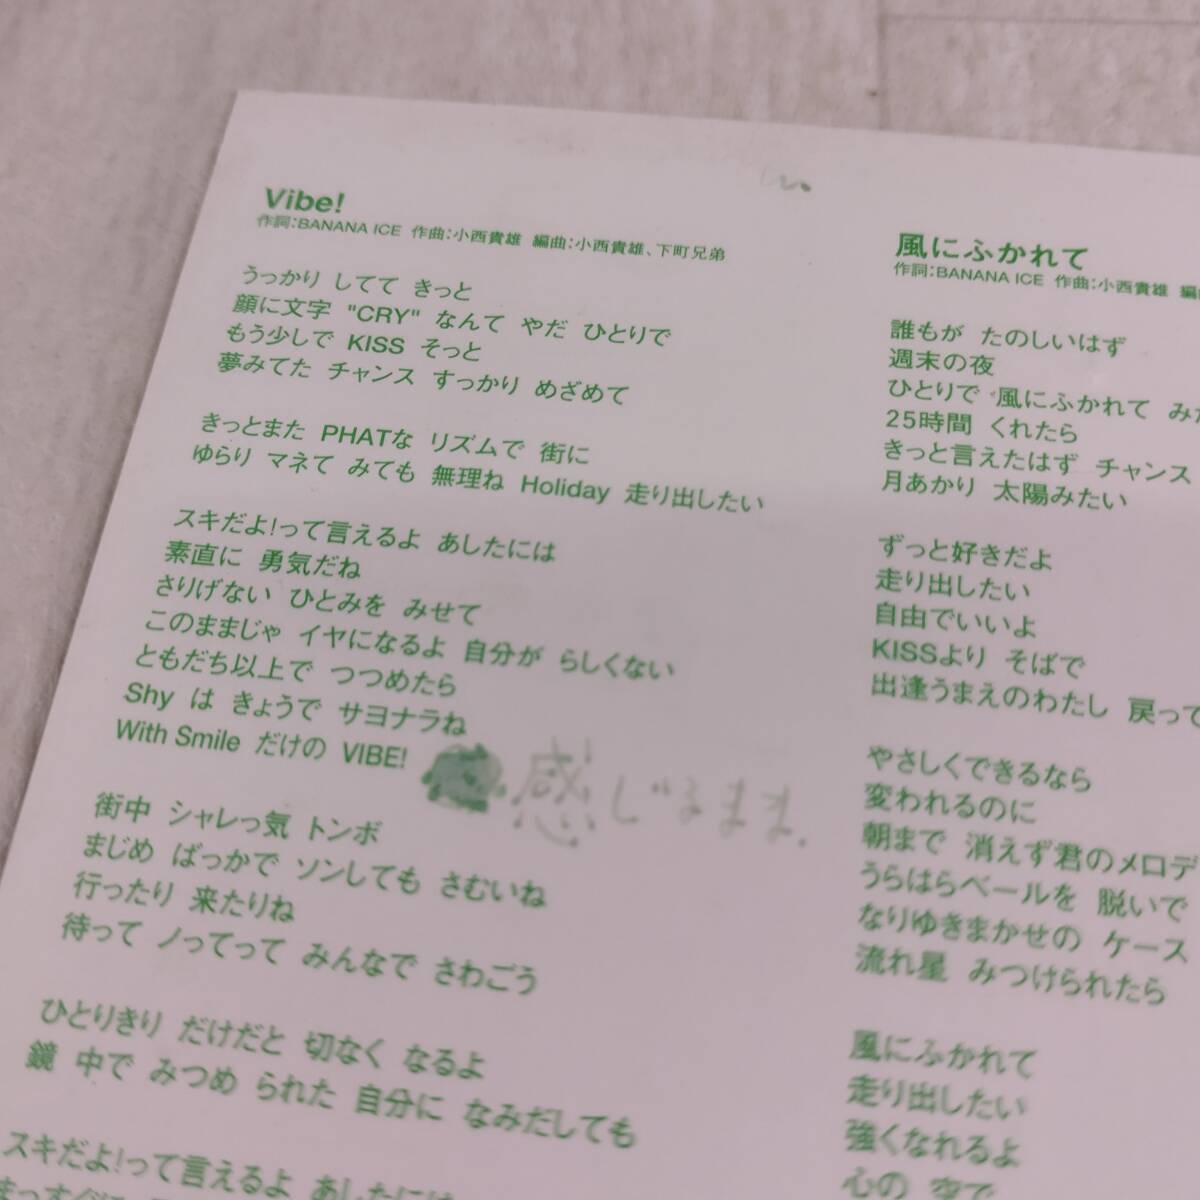 Vibe!
作詞:BANANA ICE 作曲:小西貴雄 編曲:小西貴雄、下町兄弟
うっかり してて きっと
顔に文字 "CRY" なんて やだ ひとりで
もう少しで KISS そっと
夢みてた チャンス すっかり めざめて
きっとまた PHATな リズムで 街に
ゆらり マネて みても 無理ね Holiday 走り出したい
スキだよ!って言えるよ あしたには
素直に 勇気だね
さりげない ひとみを みせて
このままじゃ イヤになるよ 自分が らしくない
ともだち以上で つつめたら
Shy は きょうで サヨナラね
With Smile だけの VIBE!
感じるまま.
街中 シャレっ気 トンボ
まじめ ばっかで ソンしても さむいね
行ったり 来たりね
待って ノってって みんなで さわごう
ひとりきり だけだと 切なく なるよ
鏡 中で みつめ られた 自分に なみだしても
スキだよ!って言えるよ あしたには
風にふかれて
作詞:BANANA ICE 作曲:小西貴雄 編
誰もが たのしいはず
週末の夜
ひとりで 風にふかれて みた
25時間 くれたら
きっと言えたはず チャンス
月あかり 太陽みたい
ずっと好きだよ
走り出したい
自由でいいよ
KISSより そばで
出逢うまえのわたし 戻って
やさしくできるなら
変われるのに
朝まで 消えず君のメロデ
うらはらベールを 脱いで
なりゆきまかせの ケース
流れ星 みつけられたら
風にふかれて
走り出したい
強くなれるよ
心の 空で